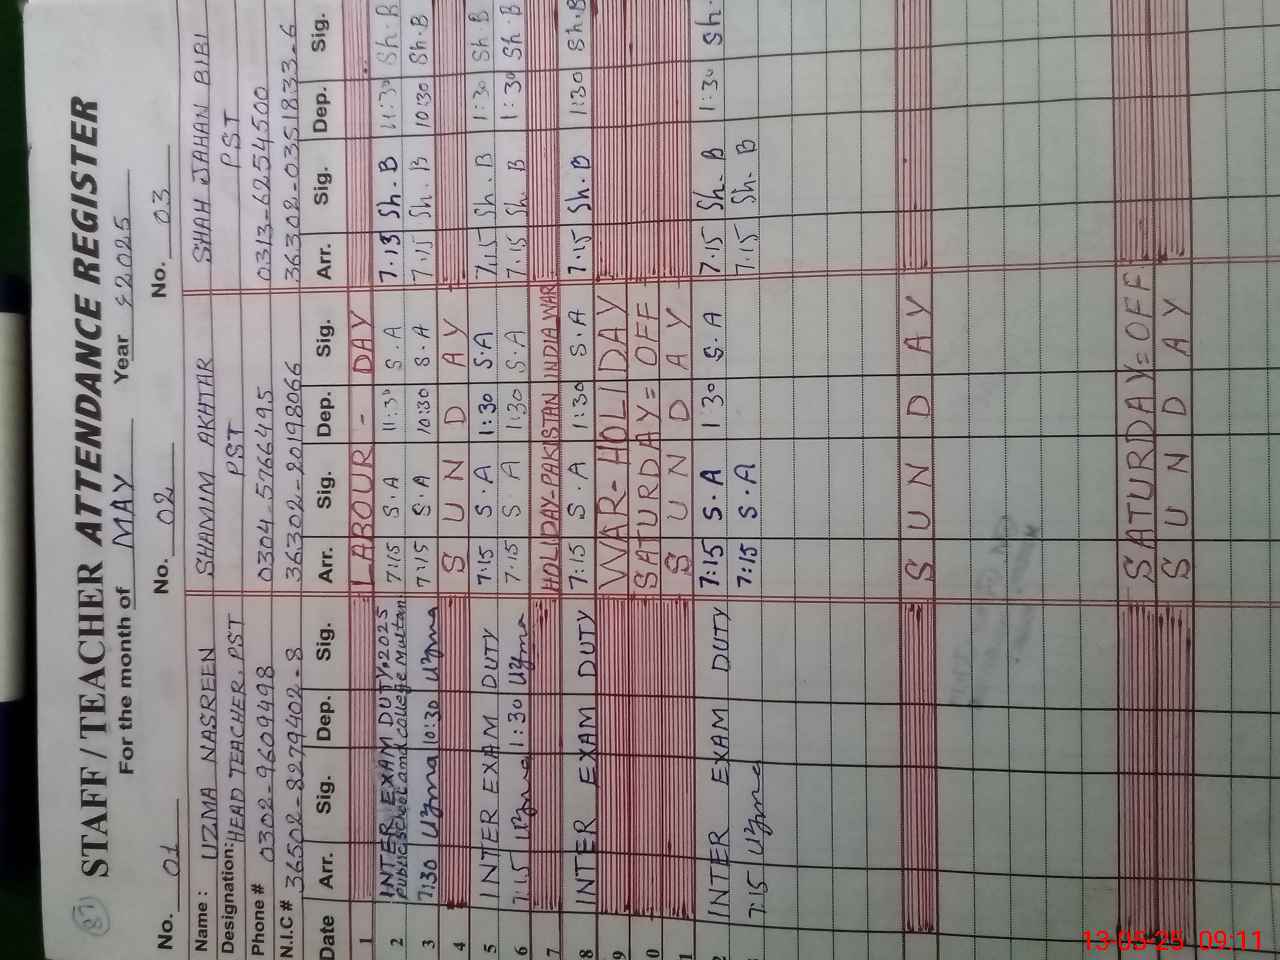 87
STAFF / TEACHER ATTENDANCE REGISTER
For the month of MAY Year 2025
No. 01 No. 02 No. 03
Name : UZMA NASREEN SHAMIM AKHTAR SHAH JAHAN BIBI
Designation: HEAD TEACHER, PST PST PST
Phone # 0302-9609498 0304-5766495 0313-6254500
N.I.C # 36502-8279402-8 36302-2019806 6 36302-0351833-6
Date Arr. Sig. Dep. Sig. Arr. Sig. Dep. Sig. Arr. Sig. Dep. Sig.
1 LABOUR - DAY
2 INTER EXAM DUTY, 2025 Public School and College Multan 7:15 S.A 11:30 S.A 7.15 Sh.B 11:30 Sh.B
3 7:30 Uzma 10:30 Uzma 7:15 S.A 10:30 S.A 7:15 Sh.B 10:30 Sh.B
4 S U N D A Y
5 INTER EXAM DUTY 7:15 S.A 1:30 S.A 7:15 Sh.B 1:30 Sh.B
6 7:15 Uzma 1:30 Uzma 7.15 S.A 1:30 S.A 7.15 Sh.B 1:30 Sh.B
7 HOLIDAY-PAKISTAN INDIA WAR
8 INTER EXAM DUTY 7:15 S.A 1:30 S.A 7.15 Sh.B 1:30 Sh.B
9 WAR-HOLIDAY
0 SATURDAY = OFF
1 S U N D A Y
2 INTER EXAM DUTY 7:15 S.A 1:30 S.A 7.15 Sh.B 1:30 Sh.
7:15 Uzma 7:15 S.A 7.15 Sh.B
S U N D A Y
SATURDAY = OFF
S U N D A Y
13-05-25 09:11